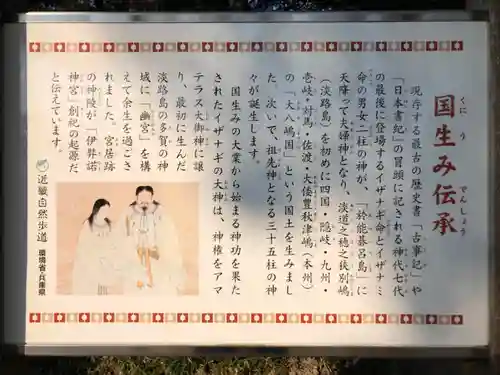 国生み伝承
くにう
でんしょう
現存する最古の歴史書「古事記」や
「日本書紀」の冒頭に記される神代七代
の最後に登場するイザナギ命とイザナミ
命の男女二柱の神が、「於能碁呂島」に
天降って夫婦神となり、淡道之穂之狭別嶋
(淡路島)を初めに四国・隠岐・九州・
壱岐・対馬・佐渡・大倭豊秋津嶋(本州)
の「大八嶋国」という国土を生みまし
た。次いで、祖先神となる三十五柱の神
々が誕生します。
国生みの大業から始まる神功を果た
されたイザナギの大神は、神権をアマ
テラス大御神に譲
り、最初に生んだ
淡路島の多賀の神
域に「幽宮」を構
えて余生を過ごさ
れました。宮居跡
の神陵が「伊弉諾
神宮」創祀の起源だ
と伝えています。
近畿自然歩道
環境省・兵庫県